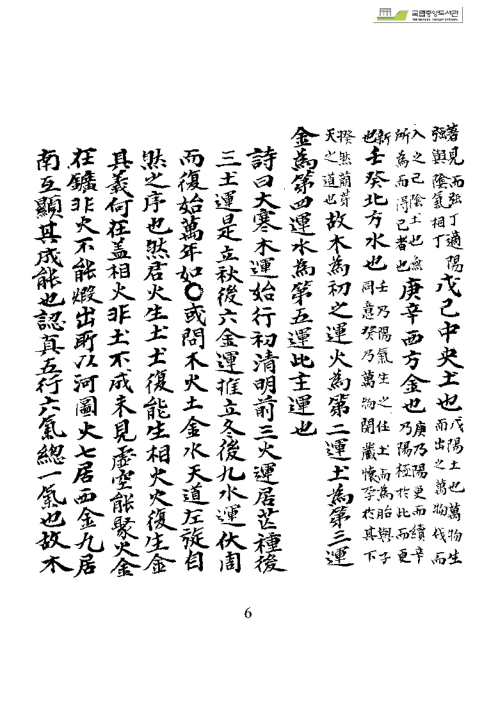 국립중앙도서관
著見而强丁適陽
强與陰氣相丁
戊己中央土也
戊陽土也萬物生
而出之萬物伐而
入之己陰土也無
所為而得己者也
庚辛西方金也
庚乃陽更而續辛
乃陽極於比而更
新也
壬癸北方水也
壬乃陽氣生之仕土而為胎與子
同意癸乃萬物閉藏懷孕於其下
揆然萌芽
天之道也
故木為初之運火為第二運土為第三運
金為第四運水為第五運比主運也
詩曰大寒木運始行初清明前三火運居芒種後
三土運是立秋後六金運推立冬後九水運伏周
而復始萬年如〇或問木火土金水天道左旋自
然之序也然君火生土土復能生相火火復生金
其義何在盖相火非土不成未見虛空能聚火金
在鑛非火不能煅出所以河圖火七居西金九居
南互顯其成能也認真五行六氣總一氣也故木
6